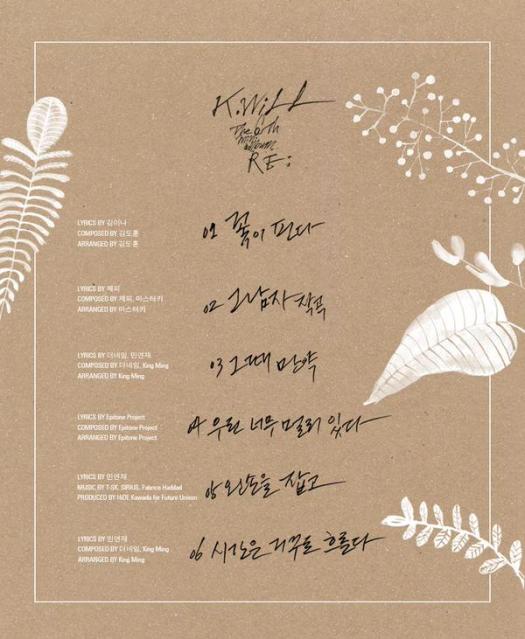 K.Will
The 6th
mini
album
RE:
LYRICS BY 김이나
COMPOSED BY 김도훈
ARRANGED BY 김도훈
01 꽃이 핀다
LYRICS BY 제피
COMPOSED BY 제피, 미스터키
ARRANGED BY 미스터키
02 그남자 작곡
LYRICS BY 더네임, 민연재
COMPOSED BY 더네임, King Ming
ARRANGED BY King Ming
03 그때 만약
LYRICS BY Epitone Project
COMPOSED BY Epitone Project
ARRANGED BY Epitone Project
04 우린 너무 멀리 있다
LYRICS BY 민연재
MUSIC BY T-SK, SIRIUS, Fabrice Haddad
PRODUCED BY HIDE Kawada for Future Unison
05 왼손을 잡고
LYRICS BY 민연재
COMPOSED BY 더네임, King Ming
ARRANGED BY King Ming
06 시간은 거꾸로 흐른다